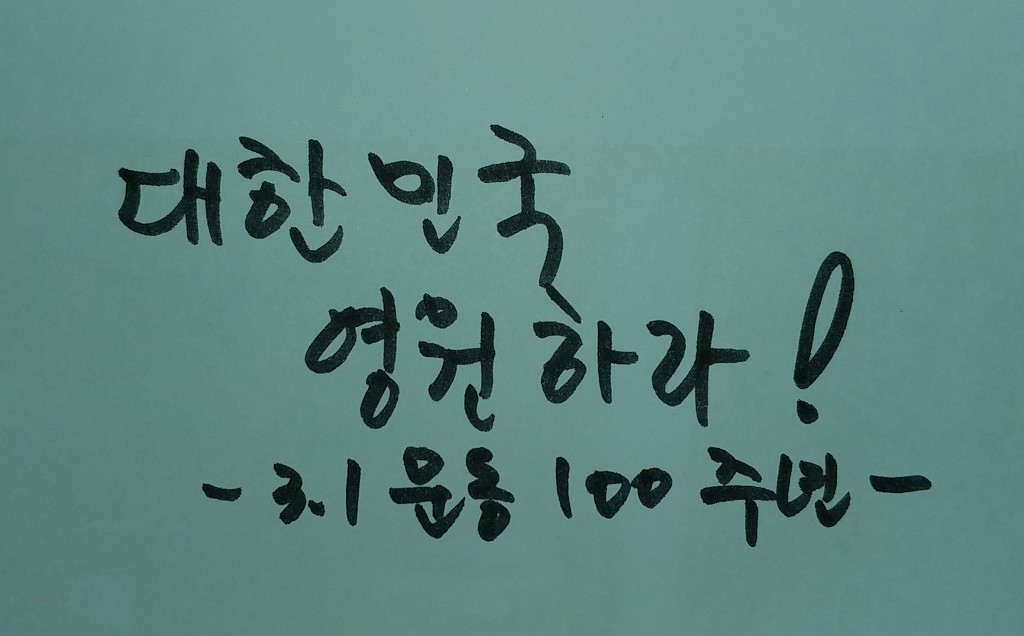 대한민국
영원하라!
-3.1 운동 100 주년-